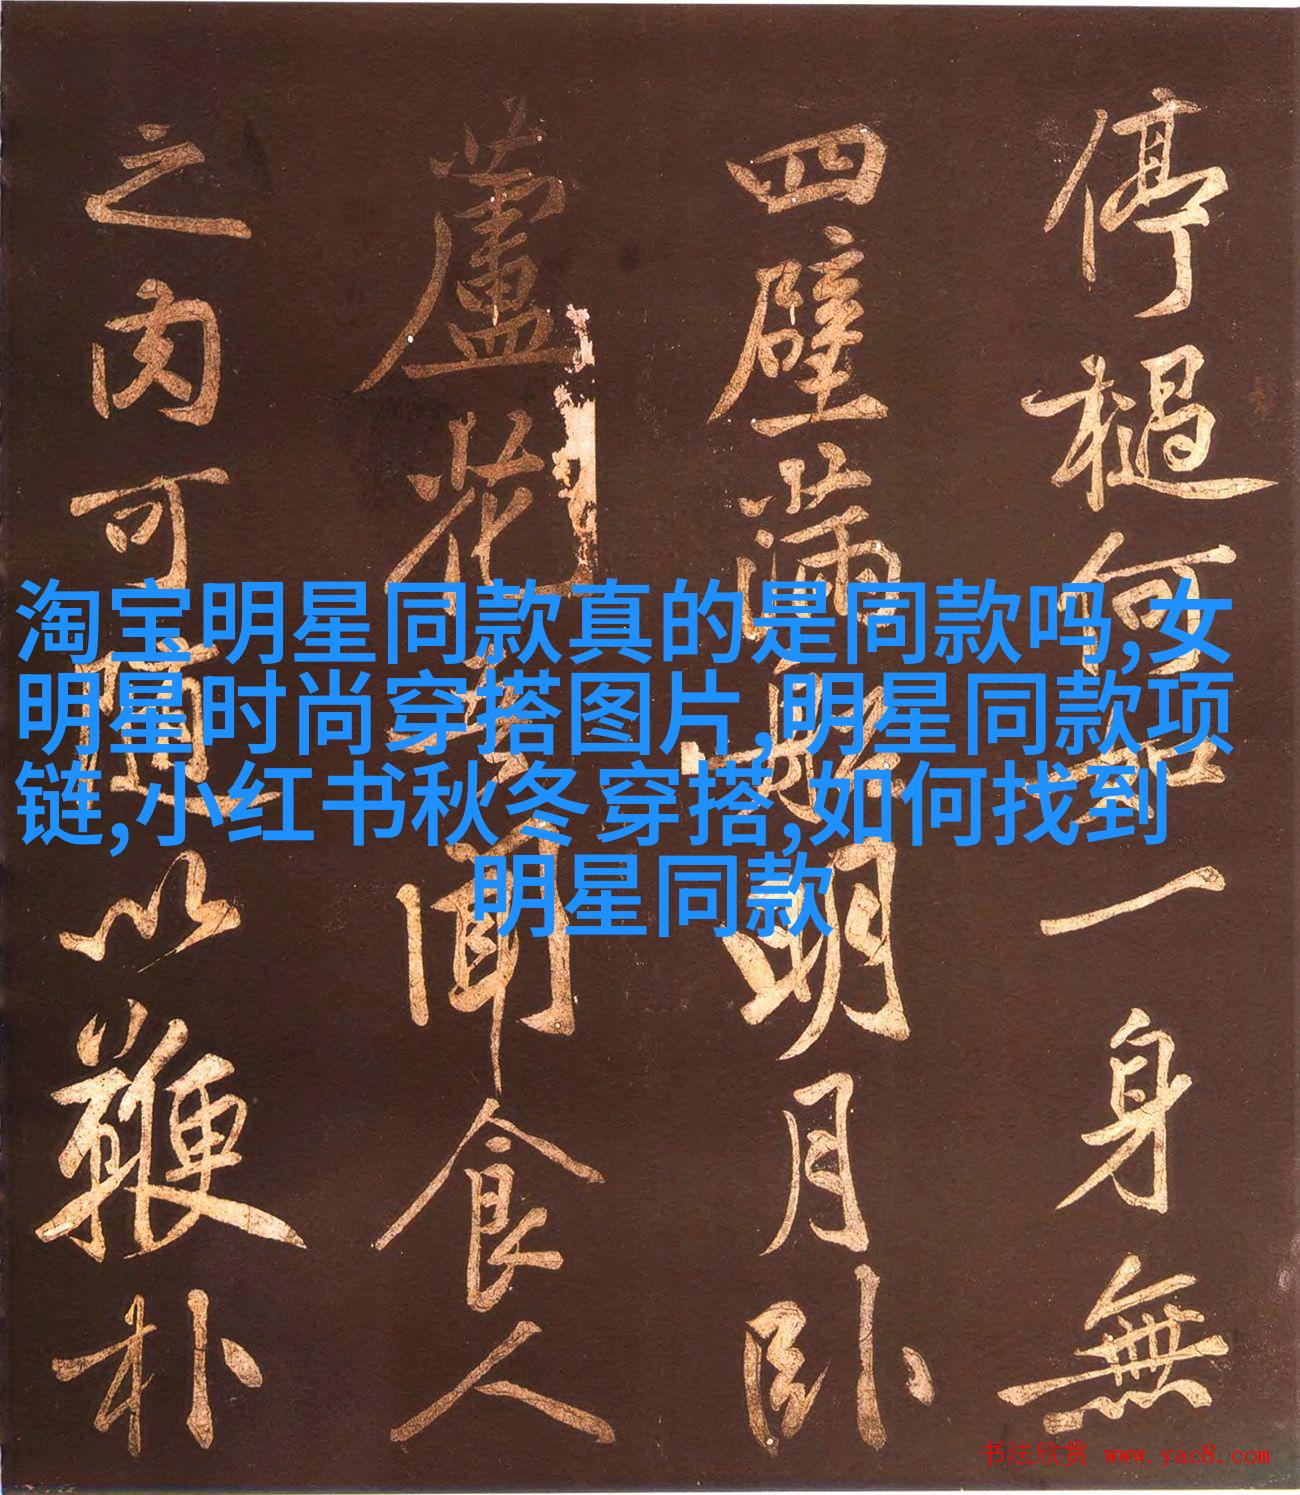 停槌何如一身無
四壁滿聯明月卧
蘆花老聞食人
之肉可隨以鞭朴
淘宝明星同款真的是同款吗,女
明星时尚穿搭图片,明星同款项
链,小红书秋冬穿搭,如何找到
明星同款
书法欣赏 www.yac8.com